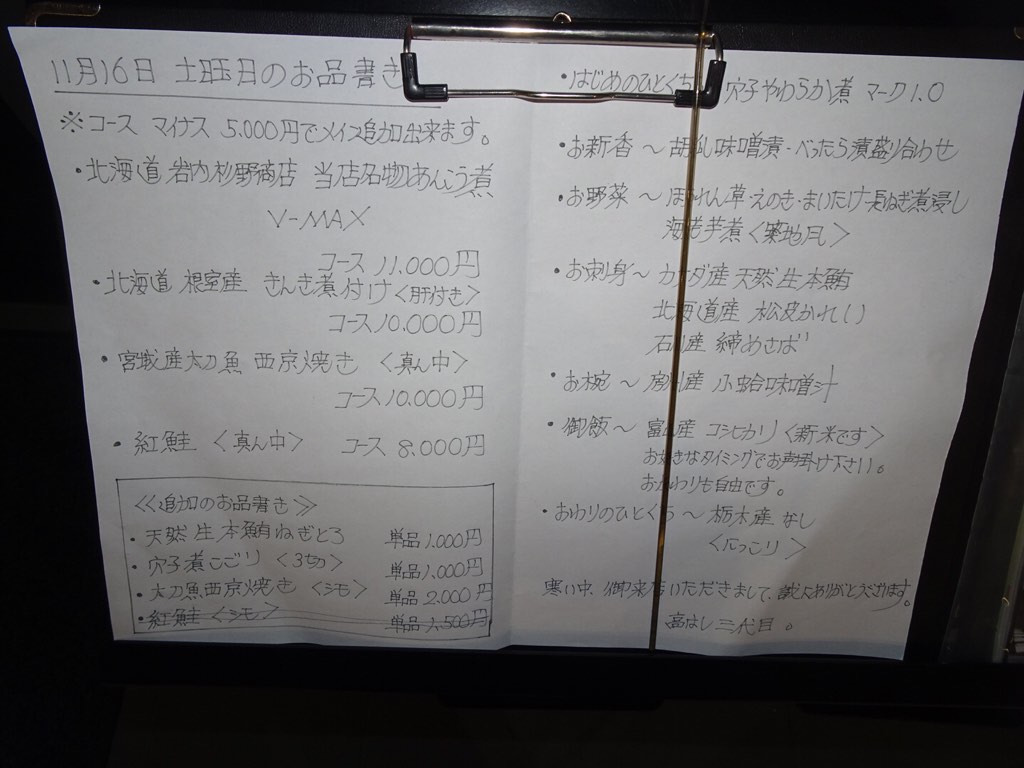 11月16日 土曜日のお品書き
※コース マイナス 5,000円でメイン追加出来ます。
・北海道 岩内杉野商店 当店名物あんこう煮
V-MAX
コース 11,000円
・北海道 根室産 きんき煮付け〈肝付き〉
コース10,000円
・宮城産太刀魚 西京焼き 〈真ん中〉
コース10,000円
・紅鮭 〈真ん中〉 コース 8,000円
《追加のお品書き》
・天然生本鮪ねぎとろ 単品1,000円
・穴子煮こごり〈3切〉 単品1,000円
・太刀魚西京焼き〈シモ〉 単品2,000円
・紅鮭〈シモ〉 単品1,500円
・はじめのひとくち 穴子やわらか煮 マーク1.0
・お新香～胡瓜味噌漬・べったら漬盛り合わせ
・お野菜～ほうれん草・えのき・まいたけ・長ねぎ煮浸し
海老芋煮〈築地風〉
・お刺身～カナダ産天然生本鮪
北海道産 松皮かれい
石川産 締めさば
・お椀～房州産 小蛤味噌汁
・御飯～富山産 コシヒカリ〈新米です〉
お好きなタイミングでお声掛け下さい。
おかわりも自由です。
・おわりのひとくち～栃木産 なし
〈にっこり〉
寒い中、御来店いただきまして、誠にありがとうござます。
高はし三代目。